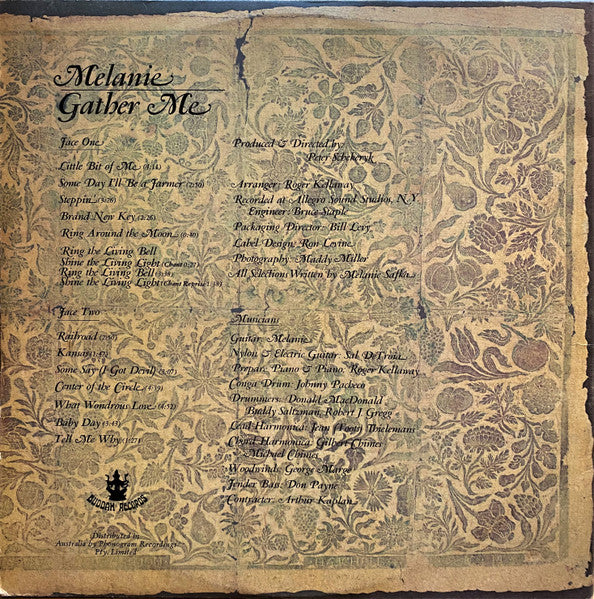 Melanie
Gather Me
Face One
Little Bit of Me (3:14)
Some Day I'll Be a Farmer (2:50)
Steppin (3:26)
Brand New Key (2:26)
Ring Around the Moon (0:40)
Ring the Living Bell
Shine the Living Light (Chant 0:27)
Ring the Living Bell
Shine the Living Light (Chant Reprise
Face Two
Railroad
Kansas
Some Say (I Got Devil) (3:07)
Center of the Circle
When Wondrous Love (4:52)
Baby Day (3:43)
Tell Me Why
BUDDAH RECORDS
Distributed in
Australia by Phonogram Recordings
Pty. Limited
Produced & Directed by:
Peter Schekeryk
Arranger: Roger Kellaway
Recorded at Allegro Sound Studios, N.Y.
Engineer: Bruce Staple
Packaging Director: Bill Levy
Label Design: Ron Levine
Photography: Maddy Miller
All Selections Written by Melanie Safka
Musicians
Guitar: Melanie
Nylon & Electric Guitar: Sal DeTroia
Prepare Piano & Piano: Roger Kellaway
Conga Drum: Johnny Pacheco
Drummers: Donald MacDonald
Buddy Saltzman, Robert J. Gregg
Lead Harmonica: Jean (Toots) Thielemans
Chord Harmonica: Gilbert Chimes
Michael Chimes
Woodwinds: George Marge
Fender Bass: Don Payne
Contracter: Arthur Kaplan